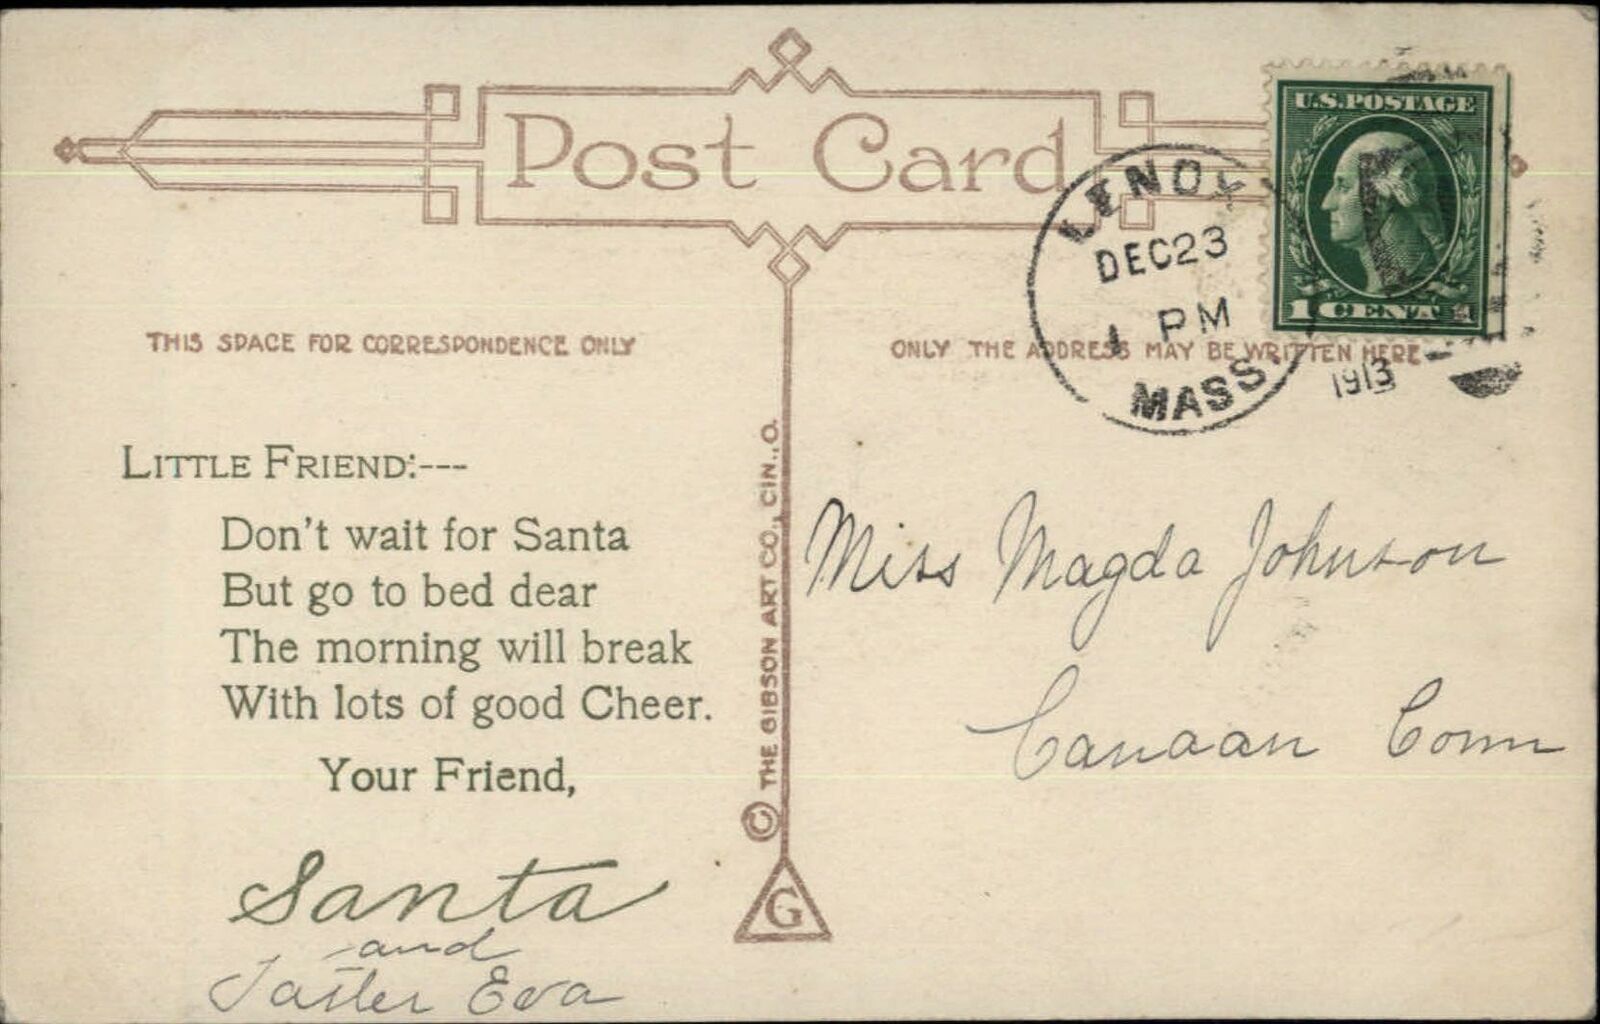 Post Card
U.S. POSTAGE
1 CENT
LENOX
DEC 23
1 PM
MASS.
1913
THIS SPACE FOR CORRESPONDENCE ONLY
ONLY THE ADDRESS MAY BE WRITTEN HERE
LITTLE FRIEND:---
Don't wait for Santa
But go to bed dear
The morning will break
With lots of good Cheer.
Your Friend,
Santa
and
Taster Eva
© THE GIBSON ART CO., CIN., O.
G
Miss Magda Johnson
Canaan Conn